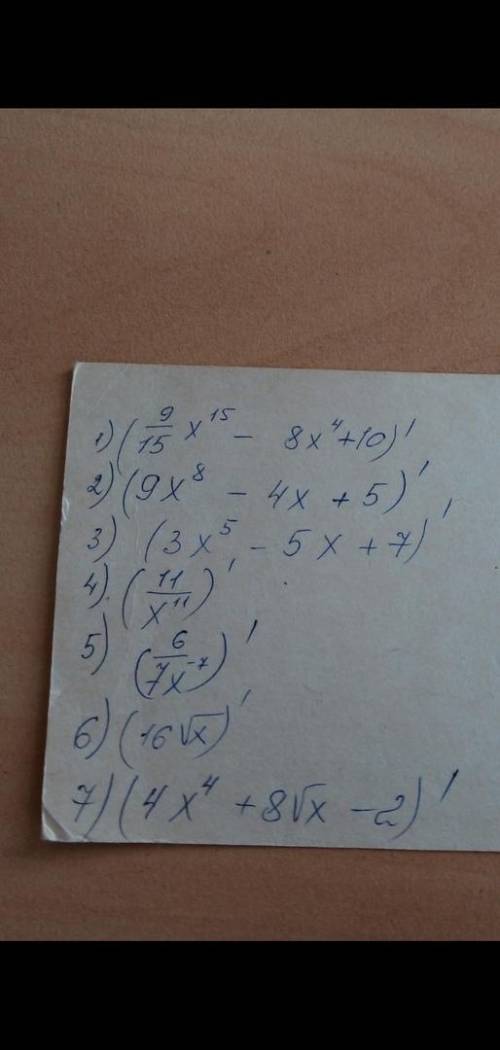 1) (9/15 x¹⁵ - 8x⁴+10)'
2) (9x⁸ - 4x + 5)'
3) (3x⁵ - 5x + 7)'
4). (11/x¹¹)'
5) (6/7x⁻⁷)'
6) (16√x)'
7) (4x⁴ + 8√x - 2)'